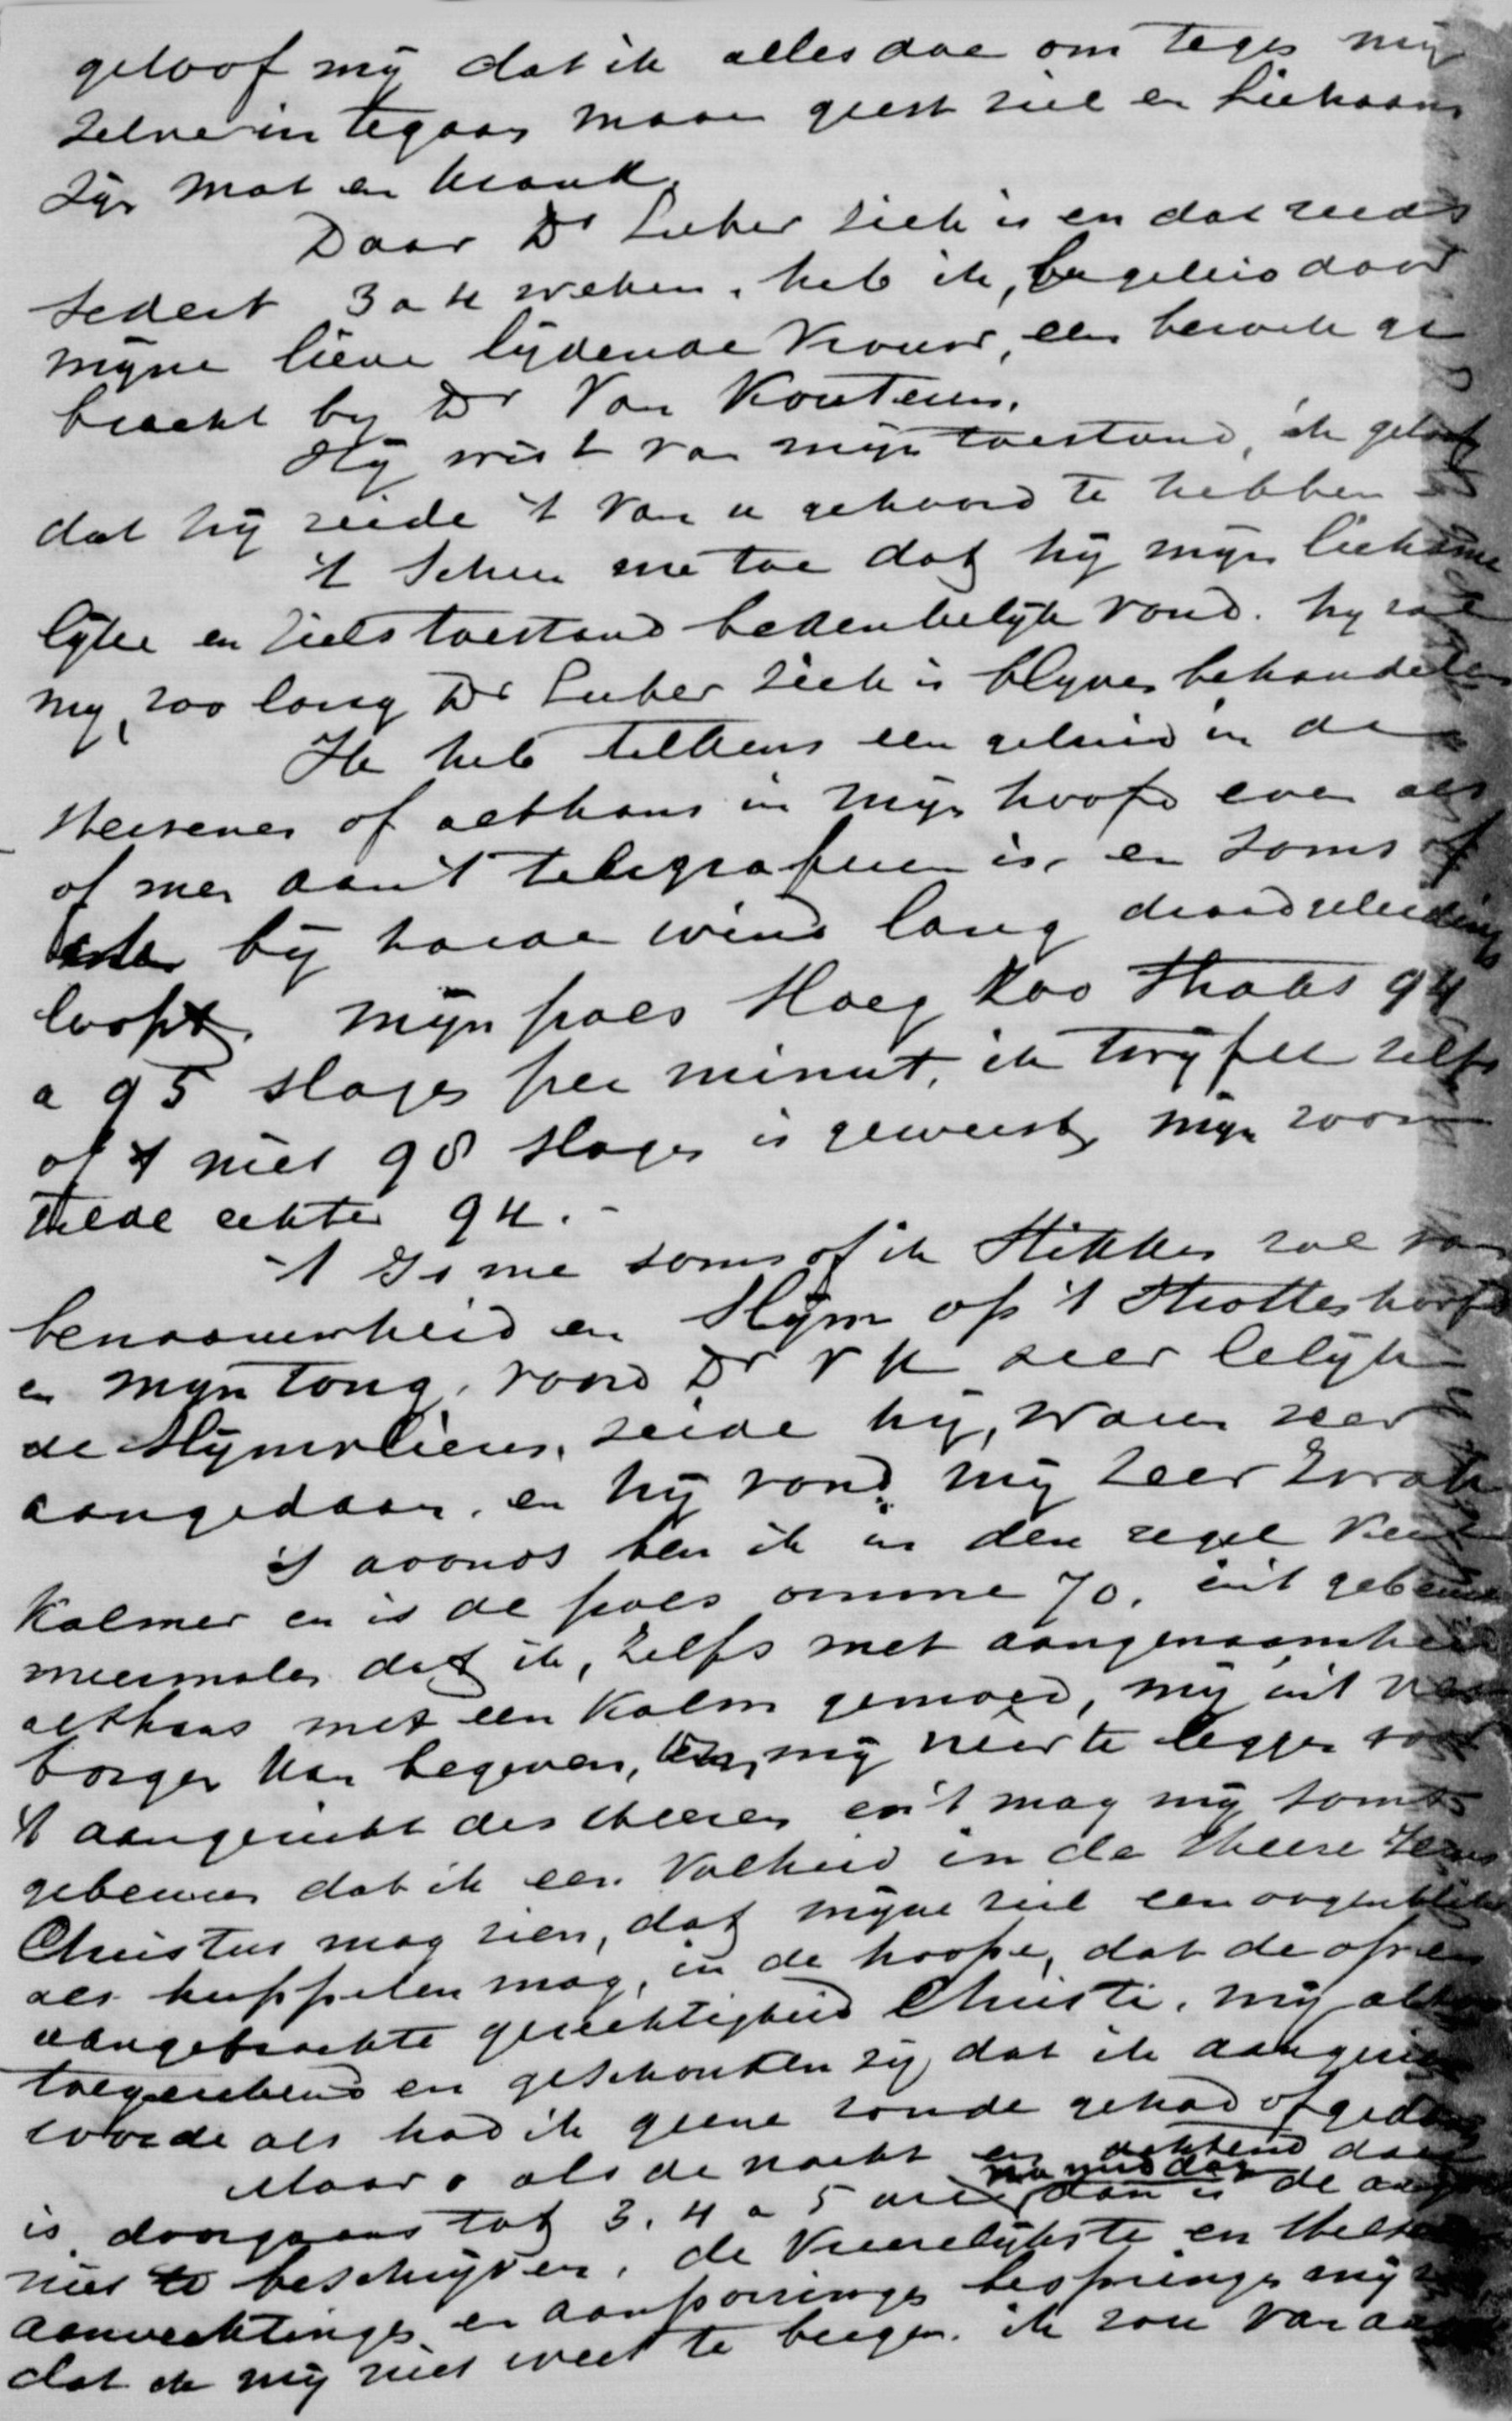 geloof mij dat ik alles doe om tegen mij
zelve in tegaan maar geest ziel en Lichaam
zijn mat en krank.
Daar Dr Luber ziek is en dat reeds
sedert 3 a 4 weken, heb ik, begeleid door
mijne lieve lijdende Vrouw, een bezoek ge
bracht by Dr Van
Hij wist van mijn toestand, ik geloof
dat hij zeide 't van u gehoord te hebben
't Scheen me toe dat hij mijn lichame
lijke en Zielstoestand bedenkelijk vond. hy zal
my, zoo lang Dr Luber ziek is blyven behandelen
Ik heb telkens een geluid in de
Hersenen of althans in mijn hoofd even als
of men aan 't telegrafeeren is, en soms of
bij harde wind lang draadgeleiding
loopt. mijn pols sloeg zoo straks 94
a 95 slagen per minut, ik twyfel zelfs
of 't niet 98 slagen is geweest, mijn zoon
telde echter 94.-
't Is me soms of ik stikken zal van
benaauwdheid en Slijm op 't Strottenhoofd
en mijn tong, vond Dr V K zeer lelijk
de slymvliezen, zeide hij, waren zeer
aangedaan, en hij vond mij zeer zwak
's avonds ben ik in den regel veel
Kalmer en is de pols omme 70. en 't gebeurd
meermalen dat ik, zelfs met aangenaamheid
althans met een kalm gemoed, mij in 't ver
borgen kan begeven, en mij neer te leggen voor
't aangezicht des Heeren en 't mag mij soms
gebeuren dat ik een Volheid in de Heere Jezus
Christus mag zien, dat mijne ziel een oogenblik
als huppelen mag, in de hoope, dat de
aangebrachte gerechtigheid Christi, mij
toegerekend en geschonken zij, dat ik aangezien
worde als had ik geene zonde gehad of gedaan
Maar o als de nacht en ochtend daar
is doorgaans tot 3. 4 a 5 uur namiddag dan is de angst
niet te beschrijven, de Vreeselijkste en Helsche
aanvechtingen en aanporringen bespringen mij
dat ik mij niet weet te bergen. ik zou van